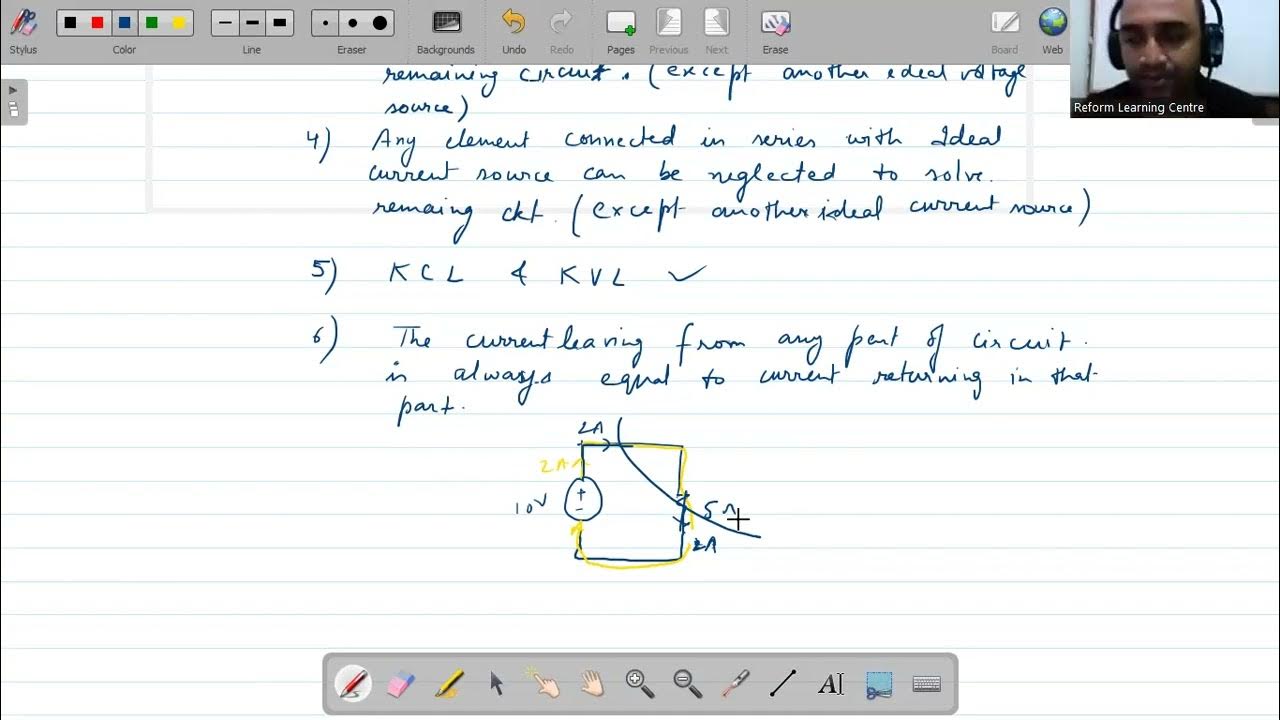 Stylus
Color
Line
Eraser
Backgrounds
Undo
Redo
Pages
Previous
Next
Erase
Board
Web
Reform Learning Centre
remaining circuit. (except another ideal voltage
source)
4) Any element connected in series with Ideal
current source can be neglected to solve.
remaing ckt. (except another ideal current source)
5) KCL & KVL ✓
6) The current leaving from any part of circuit.
is always equal to current returning in that
part.
2A
2A
10V
+
-
5
2A
AI